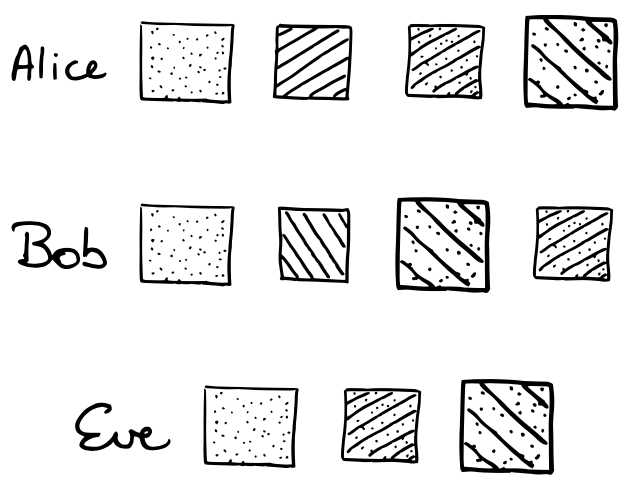 Alice
Bob
Eve